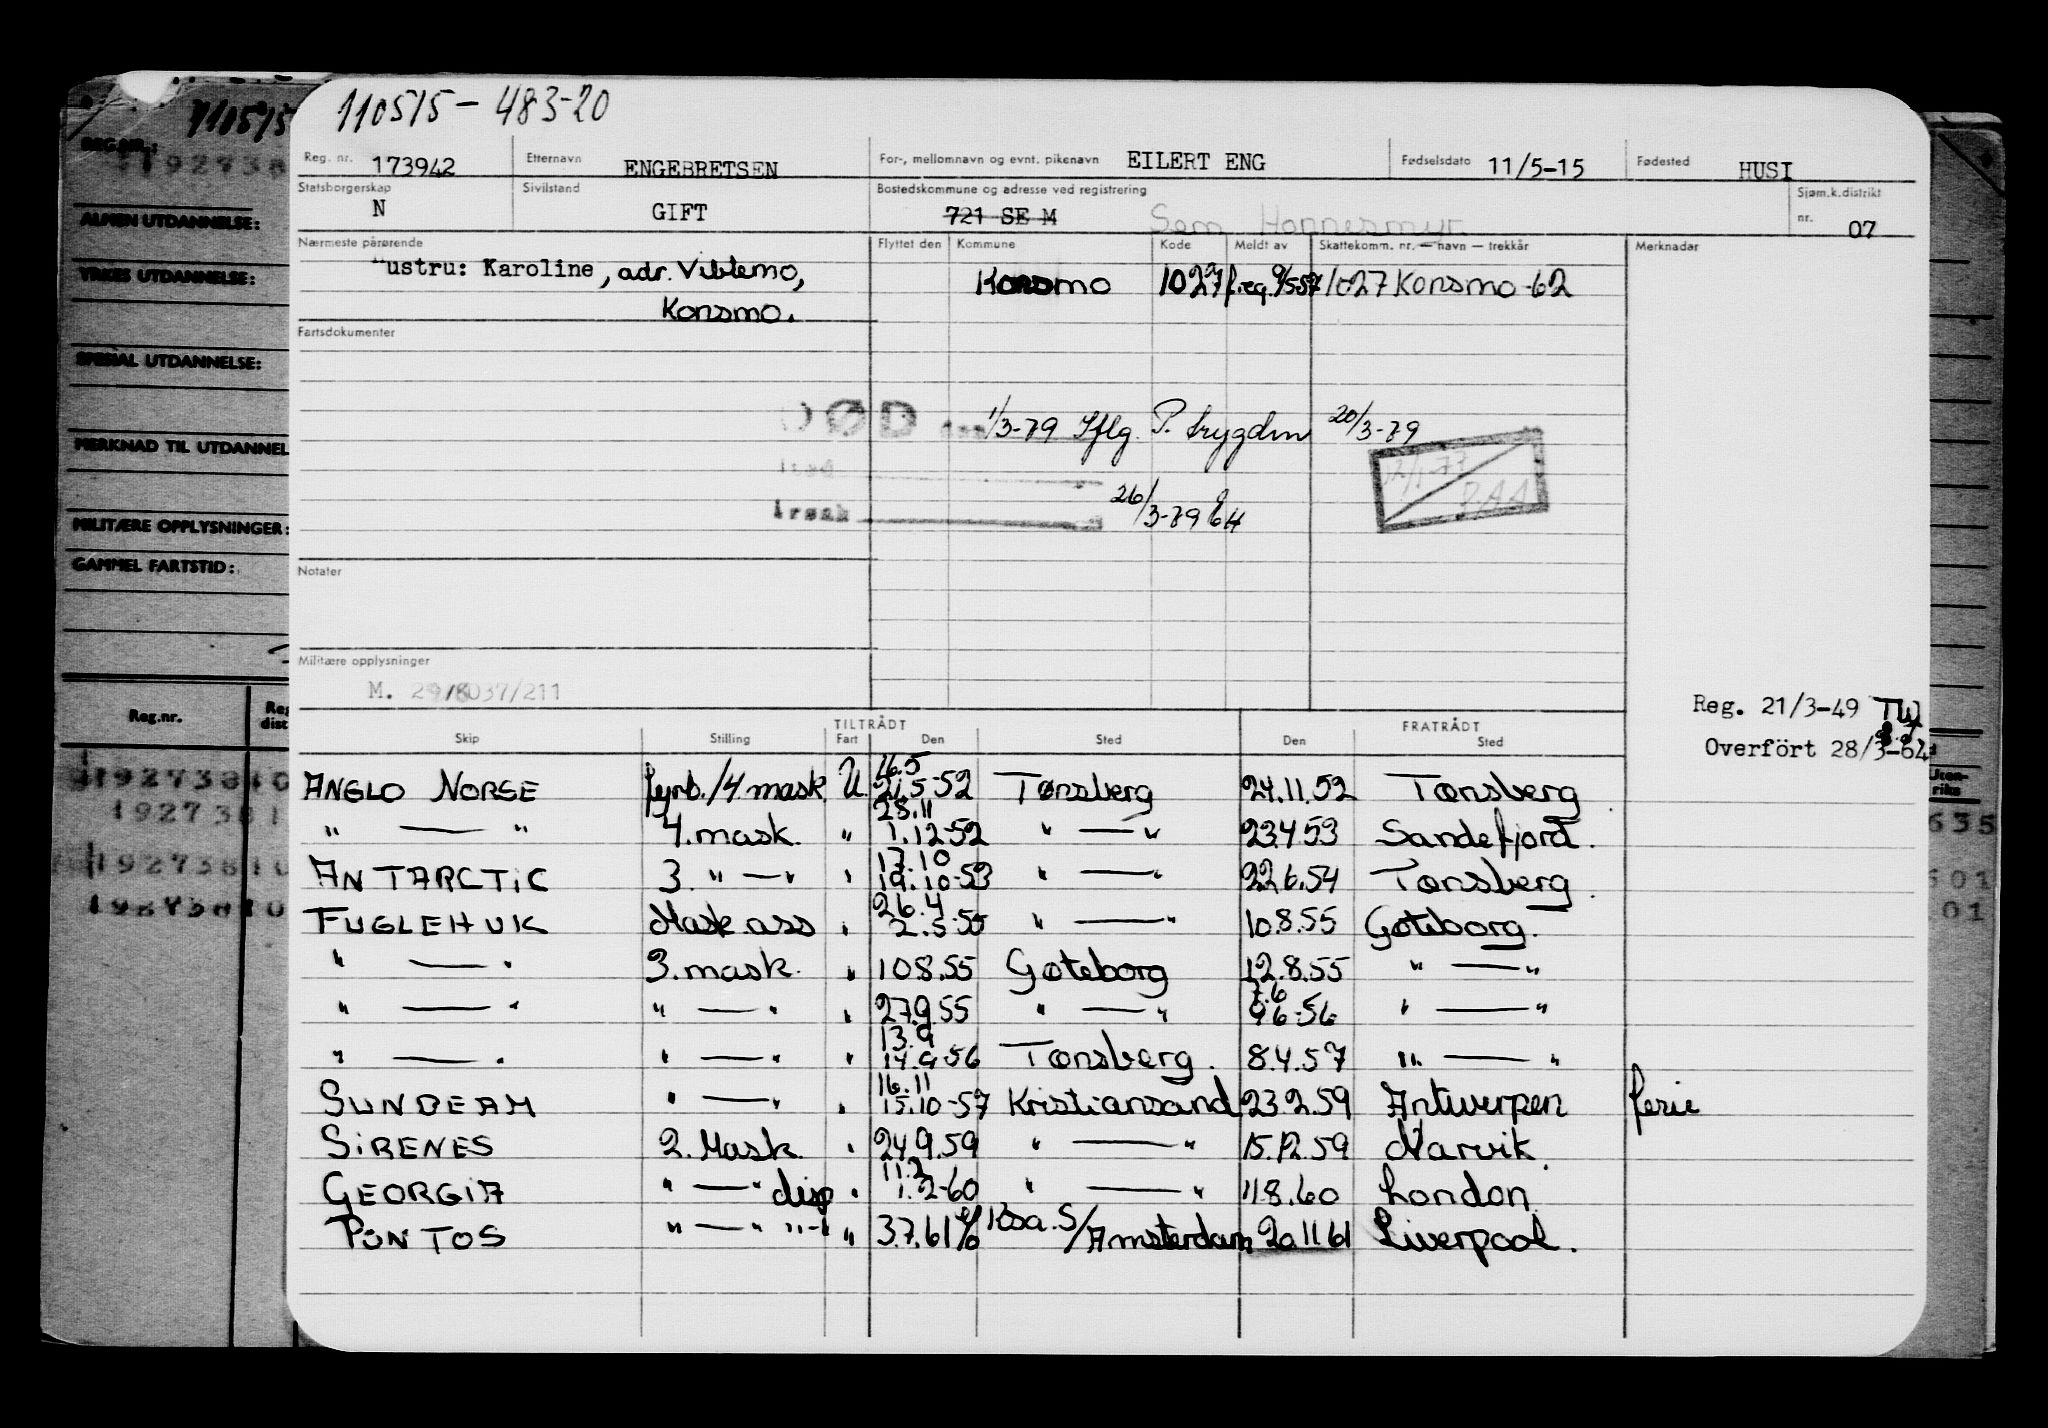 110515 - 483-20
Reg. nr. 173942 Etternavn ENGEBRETSEN For-, mellomnavn og evnt. pikenavn EILERT ENG Fødselsdato 11/5-15 Fødested HUSI
Statsborgerskap N Sivilstand GIFT Bostedskommune og adresse ved registrering 721 SEM Sem Honnesmyr Sjøm.k.distrikt nr. 07
Nærmeste pårørende Flyttet den Kommune Kode Meldt av Skattekomm. nr. — navn — trekkår Merknader
"ustru: Karoline, adr. Viblemo, Konsmo 1027 f.reg. 9/5-57 1027 Konsmo-62
Konsmo.
Fartsdokumenter
DØD den 1/3-79 Iflg. P. trygden 20/3-79
Årsak 26/3-79
Notater
Militære opplysninger
M. 29/8037/211
Reg. 21/3-49 TW
Overført 28/3-64
TILTRÅDT FRATRÅDT
Skip Stilling Fart Den Sted Den Sted
ANGLO NORSE fyrb./4 mask U 16.5 21.5-52 Tønsberg 24.11.52 Tønsberg
" — " 4. mask. " 28.11 1.12-52 " — " 23.4 53 Sandefjord.
ANTARCTIC 3. " — " " 17.10 19.10-53 " — " 22.6.54 Tønsberg.
FUGLEHUK Mask.ass " 26.4 2.5-55 " — " 10.8.55 Gøteborg.
" — " 3. mask. " 10.8.55 Gøteborg 12.8.55 " — "
" — " " — " " 27.9.55 " — " 7.6 9.6-56 " — "
" — " " — " " 13.9 14.9-56 Tønsberg. 8.4.57 " — "
SUNBEAM " — " " 16.11 15.10-57 Kristiansand 23.2.59 Antwerpen ferie
SIRENES 2. Mask. " 24.9.59 " — " 15.12.59 Narvik.
GEORGIA " — " disp " 11.2 1.2-60 " — " 11.8.60 London
PONTOS " — " " - " " 3.7.61 Ksa. S/Amsterdam 20.11 61 Liverpool.
110515
REG.NR.:
ALMEN UTDANNELSE:
YRKES UTDANNELSE:
SPESIAL UTDANNELSE:
MERKNAD TIL UTDANNEL
MILITÆRE OPPLYSNINGER:
GAMMEL FARTSTID:
Reg.nr. Reg dist
Uten-
riks
635
601
01